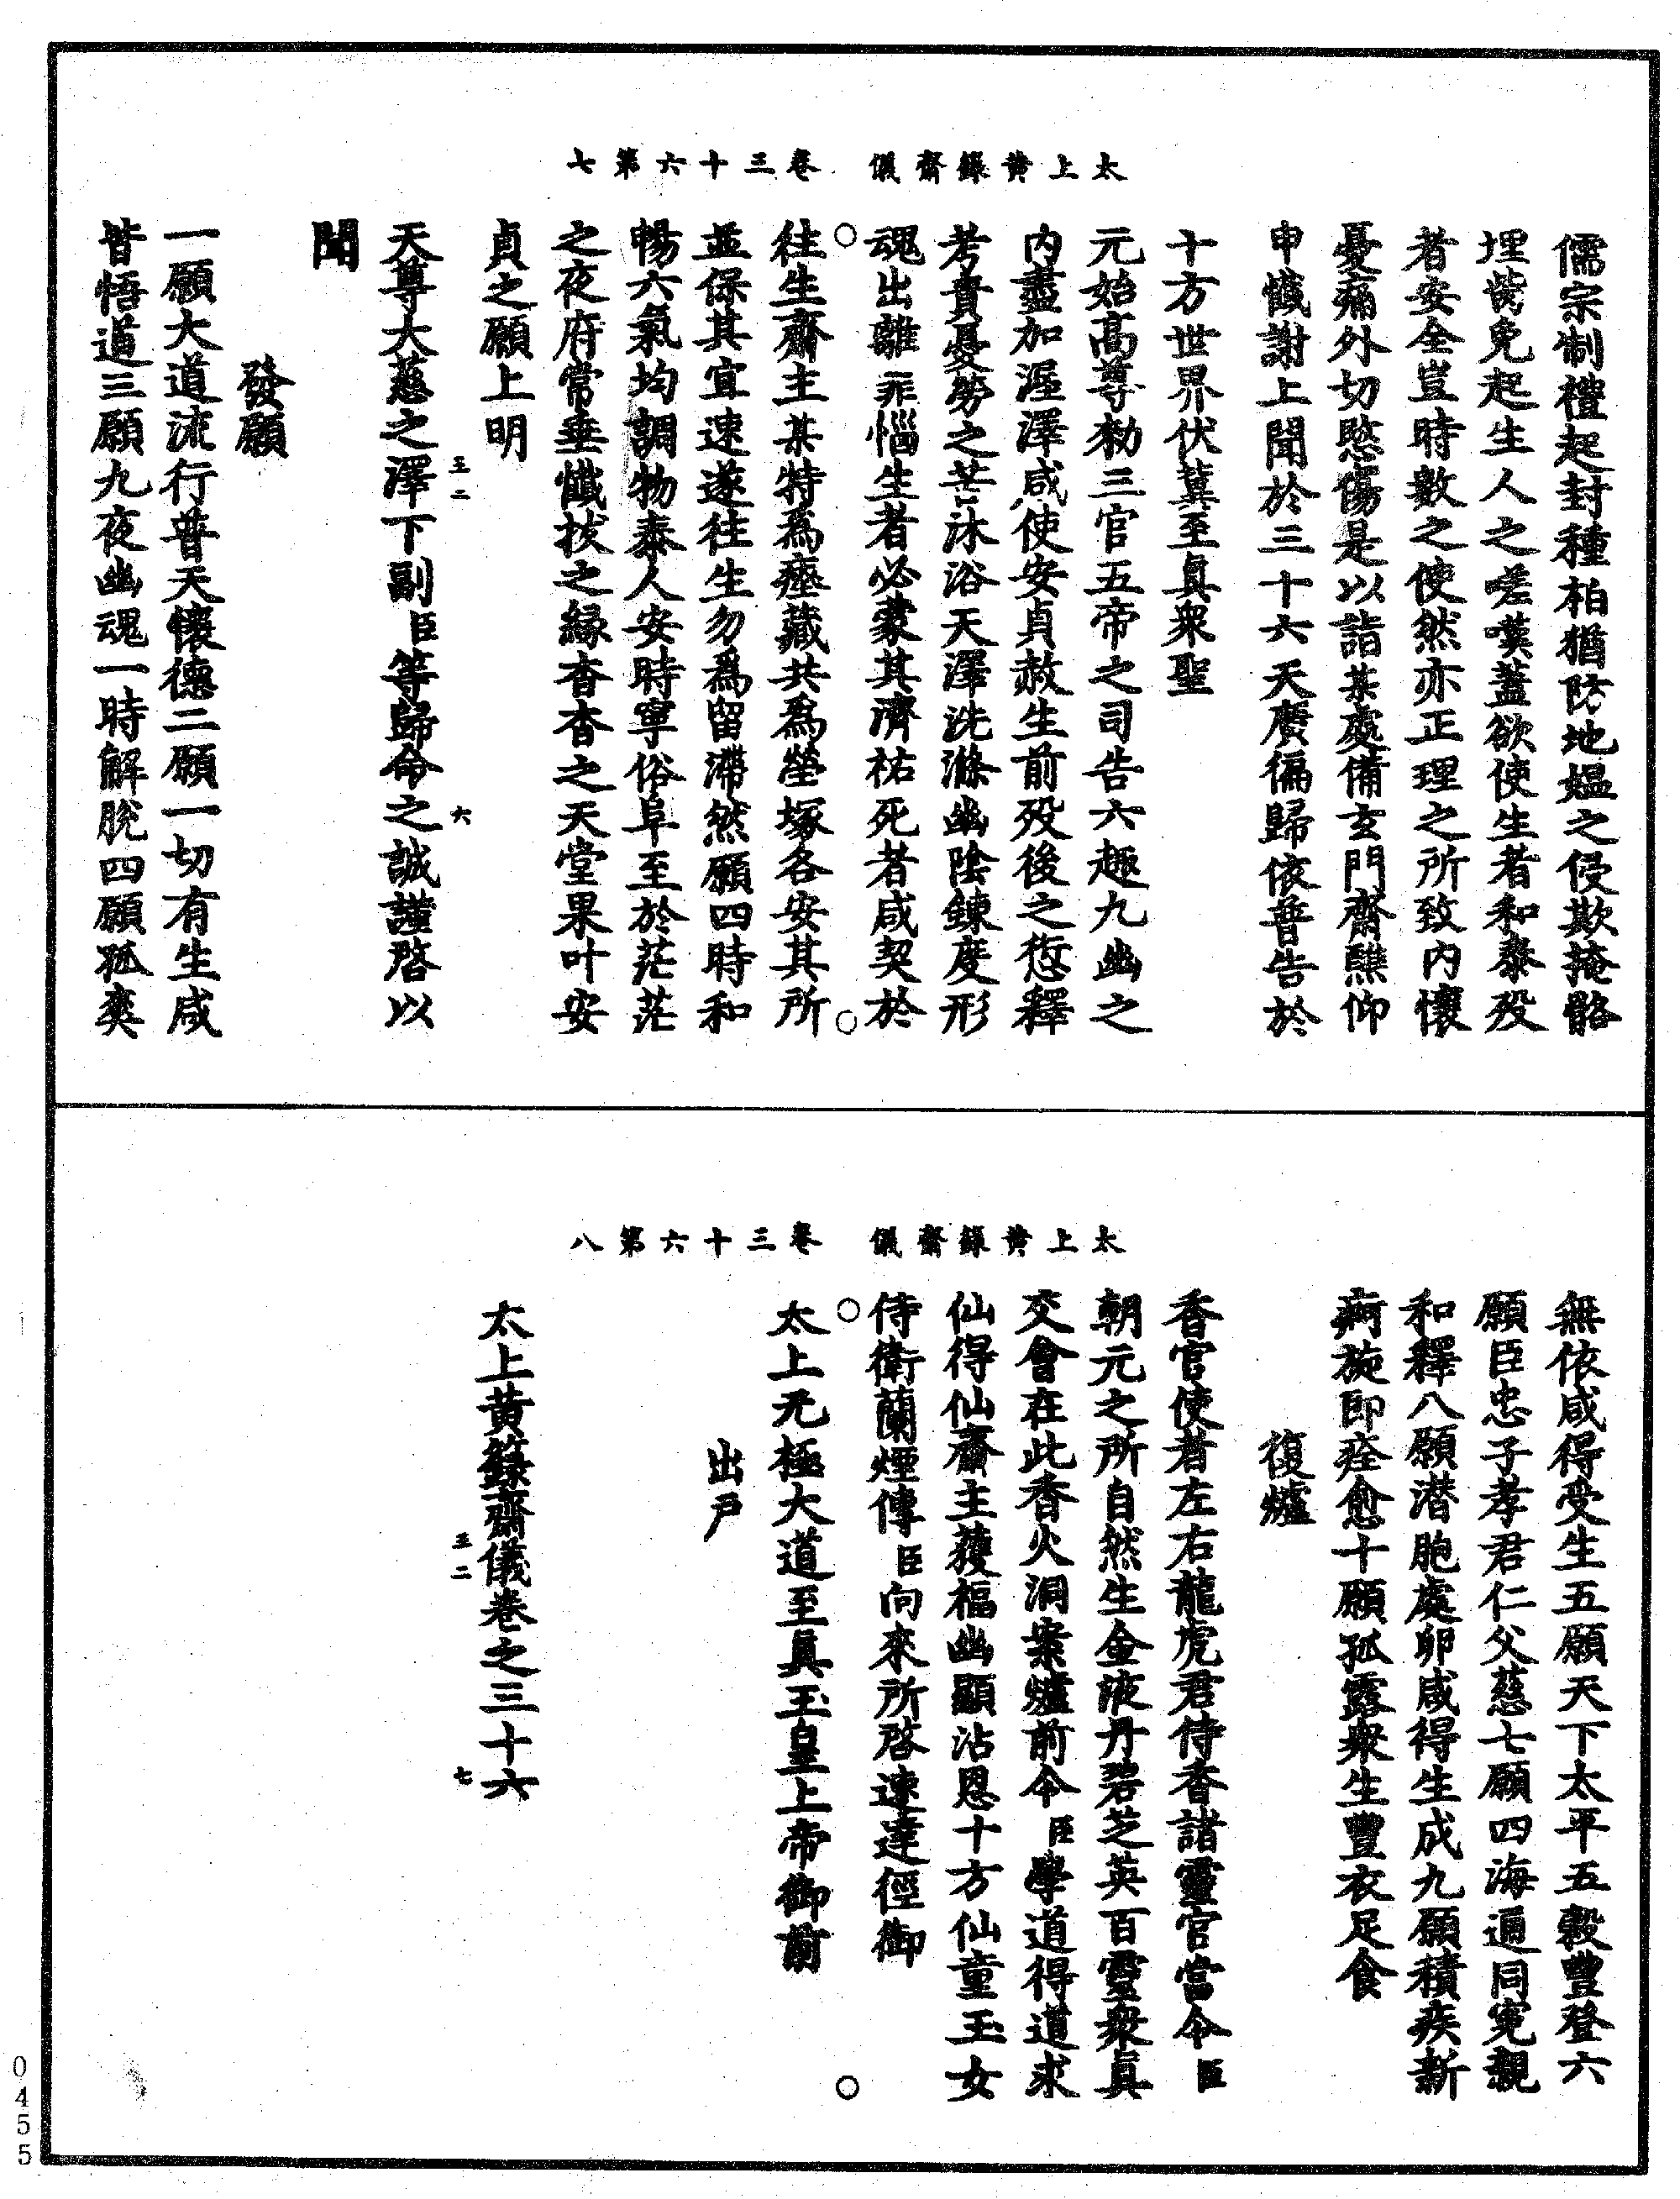 太上黃籙齋儀　卷三十六第七
儒宗制禮起封種柏猶防地媼之侵欺掩骼
埋胔免起生人之嗟嘆蓋欲使生者和泰殁
者安全豈時數之使然亦正理之所致内懷
憂痛外切愍傷是以詣某處備玄門齋醮仰
申懴謝上聞於三十六天廣徧歸依普告於
十方世界伏冀至眞衆聖
元始高尊勑三官五帝之司告六趣九幽之
内盡加渥澤咸使安貞赦生前殁後之愆釋
考責憂勞之苦沐浴天澤洗滌幽陰鍊度形
魂出離罪惱生者必蒙其濟祐死者咸契於
往生齋主某特爲瘞藏共爲塋塚各安其所
並保其宜速遂往生勿爲留滯然願四時和
暢六氣均調物泰人安時寧俗阜至於茫茫
之夜府常垂懴拔之緣杳杳之天堂果叶安
貞之願上明
王二　六
天尊大慈之澤下副臣等歸命之誠謹啓以
聞
發願
一願大道流行普天懷德二願一切有生咸
皆悟道三願九夜幽魂一時解脫四願孤爽
太上黃籙齋儀　卷三十六第八
無依咸得受生五願天下太平五穀豐登六
願臣忠子孝君仁父慈七願四海通同寃親
和釋八願潜胞處卵咸得生成九願積疾新
痾施即痊愈十願孤露衆生豐衣足食
復爐
香官使者左右龍虎君侍香諸靈官當令臣
朝元之所自然生金液丹碧芝英百靈衆眞
交會在此香火洞案爐前令臣學道得道求
仙得仙齋主獲福幽顯沾恩十方仙童玉女
侍衛蘭煙傳臣向來所啓速達徑御
太上无極大道至眞玉皇上帝御前
出戶
太上黃籙齋儀卷之三十六
王二　七
0455